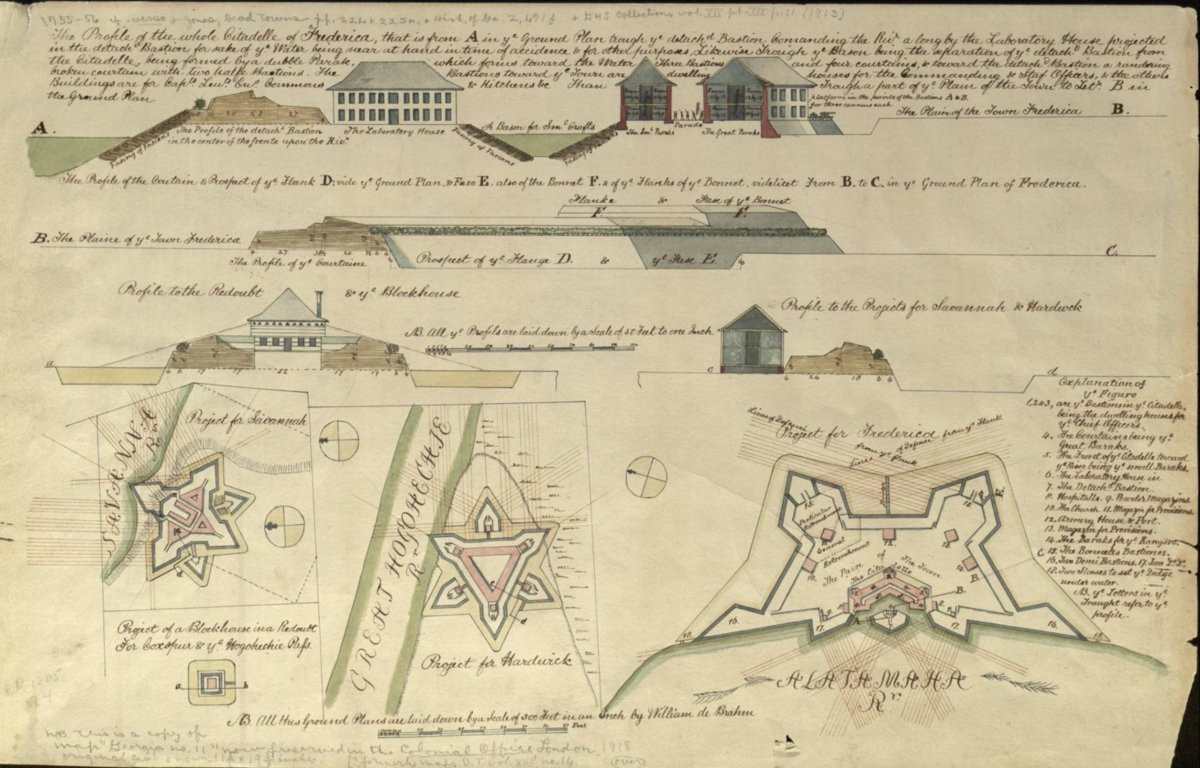 1755-56 cf. verso & Jones, Dead Towns pp. 224 & 225n, + Hist. of Ga. I, 491 f + GHS Collections vol. VII pt. III p. 11 (1913)
The Profile of the whole Citadelle of Frederica, that is from A in yᵉ Ground Plan trough yᵉ detachᵈ Bastion Comanding the Rivʳ a long by the Laboratory House projected
in the detachᵈ Bastion for sake of yᵉ Water being near at hand in time of accidence & for other purposes, Likewise trough yᵉ Bason being the separation of yᵉ detachᵈ Bastion from
the Citadelle, being formed by a dubble Parak, which forms toward the Water Three Bastions and four courtains, & toward the detachᵈ Bastion a randering
broken courtain with two halfe Bastions. The Bastions toward yᵉ Town are dwelling houses for the Commanding & Staf Officers, & the others
Buildings are for Capᵗ. Leuᵗ. Ens. Commons & Kitchens &c Than Traugh a part of yᵉ Plain of the Town to Letʳ B in
the Ground Plan
platform in the points of the Bastions A & B.
for three cannons each
The Plain of the Town Frederica B.
A.
The Profile of the detachᵗ Bastion
in the center of the fronte upon the Rivʳ
The Laboratory House
A Bason for Smˡ Crafts
The Smˡ Paraks
Parade
The Great Paraks
Fading of Fascens
Fading of Fascens
Fading of Fascens
The Profile of the Courtain & Prospect of yᵉ Flank D. vide yᵉ Ground Plan, & Fase E. also of the Bonnet F. & of yᵉ Flanks of yᵉ Bonnet, videlicet From B. to C. in yᵉ Ground Plan of Frederica.
Flanke & Fase of yᵉ Bonnet
F. F.
B. The Plaine of yᵉ Town Frederica
The Profile of yᵉ Courtaine
Prospect of yᵉ Flange D. & yᵉ Fase E.
C.
Profile to the Redoubt & yᵉ Blockhouse
Profile to the Projects for Savannah & Hardwek
NB. All yᵉ Profils are laid down by a Scale of 50 Feet to one Inch
a
c
d
Explanation of
yᵉ Figure
1, 2 & 3, are yᵉ Bastions in yᵉ Citadelle,
being the dwelling houses for
yᵉ Chief Officers.
4, The Courtains being yᵉ
Great Baraks.
5. The Front of yᵉ Citadelle toward
yᵉ River being yᵉ small Baraks.
6. The Laboratory House in
7. The Detachᵈ Bastion
8. Hospitalls. 9. Powder Magazins
10. The Church. 11. Magazin for Provisions.
12. Armery House & Fort.
13. Magazin for Provisions.
14. The Baraks for yᵉ Rangers.
15. The Bonnets Bastiones.
16. Two Demi Bastions. 17. Two
18. Two Sluses to set yᵉ Dedge
under water.
NB. yᵉ Letters in yᵉ
Draught refer to yᵉ
profile.
Project for Savannah
SAVANNAH
Rivʳ
GREAT HOGOHECHIE
Rʳ
Project for Hardwick
Lines of Defence from yᵉ Flank
Project for Frederica
Lines of Defence
from yᵉ Flank
Particular
Retrenchment
General
Retrenchment
The Plain of the Town
The Citadelle
15.
E.
10
C.
B.
A
16.
17.
17
16.
18.
18
ALATAMAHA
Rʳ.
Project of a Blockhouse in a Redoubt
For Coxspur & yᵉ Hogohechie Pass.
a
NB All thes Ground Plans are laid down by a Scale of 300 Feet in an Inch by William de Brahm
Feet
NB This is a copy of
map "Georgia no. 11" now preserved in the Colonial Office London 1918
(over)